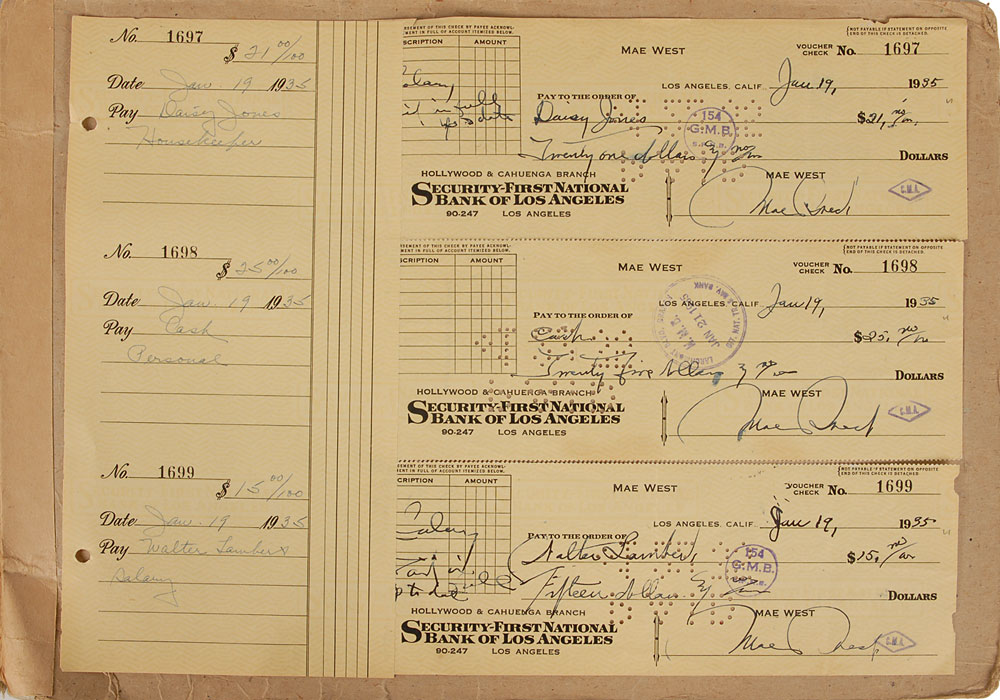 No. 1697
$ 21 00/100
Date Jan 19 1935
Pay Daisy Jones
Housekeeper
SEMENT OF THIS CHECK BY PAYEE ACKNOWL-
MENT IN FULL OF ACCOUNT ITEMIZED BELOW.
SCRIPTION AMOUNT
alary
in full
to date
MAE WEST
(NOT PAYABLE IF STATEMENT ON OPPOSITE
END OF THIS CHECK IS DETACHED.
VOUCHER
CHECK No. 1697
LOS ANGELES, CALIF. Jan 19, 1935
PAY TO THE ORDER OF
Daisy Jones $21, no/00
154
G.M.B.
Twenty one dollars & no/00 DOLLARS
HOLLYWOOD & CAHUENGA BRANCH
SECURITY-FIRST NATIONAL
BANK OF LOS ANGELES
90-247 LOS ANGELES
MAE WEST
Mae West
C.M.A.
No. 1698
$ 25 00/100
Date Jan. 19 1935
Pay Cash
Personal
SEMENT OF THIS CHECK BY PAYEE ACKNOWL-
MENT IN FULL OF ACCOUNT ITEMIZED BELOW.
SCRIPTION AMOUNT
MAE WEST
(NOT PAYABLE IF STATEMENT ON OPPOSITE
END OF THIS CHECK IS DETACHED.
VOUCHER
CHECK No. 1698
LOS ANGELES, CALIF. Jan 19, 1935
JAN 21 1935
PAY TO THE ORDER OF
Cash $25, no/00
Twenty five dollars & no/00 DOLLARS
HOLLYWOOD & CAHUENGA BRANCH
SECURITY-FIRST NATIONAL
BANK OF LOS ANGELES
90-247 LOS ANGELES
MAE WEST
Mae West
C.M.A.
No. 1699
$ 15 00/100
Date Jan. 19 1935
Pay Walter Lambert
salary
SEMENT OF THIS CHECK BY PAYEE ACKNOWL-
MENT IN FULL OF ACCOUNT ITEMIZED BELOW.
CRIPTION AMOUNT
Salary
full
to date
MAE WEST
(NOT PAYABLE IF STATEMENT ON OPPOSITE
END OF THIS CHECK IS DETACHED.
VOUCHER
CHECK No. 1699
LOS ANGELES, CALIF. Jan 19, 1935
PAY TO THE ORDER OF
Walter Lambert $15, no/00
154
G.M.B.
Fifteen dollars & no/00 DOLLARS
HOLLYWOOD & CAHUENGA BRANCH
SECURITY-FIRST NATIONAL
BANK OF LOS ANGELES
90-247 LOS ANGELES
MAE WEST
Mae West
C.M.A.